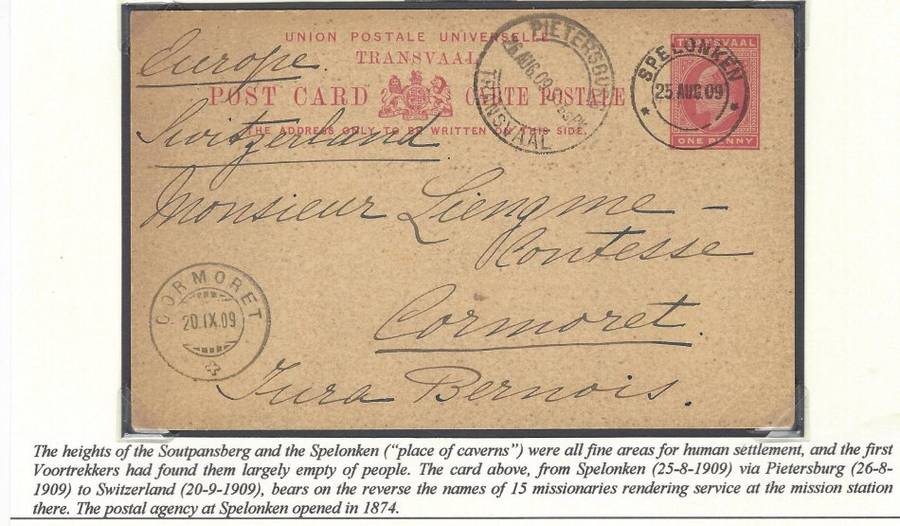 UNION POSTALE UNIVERSELLE
TRANSVAAL
POST CARD CARTE POSTALE
THE ADDRESS ONLY TO BE WRITTEN ON THIS SIDE.
PIETERSBURG
26 AUG. 09
TRANSVAAL
TRANSVAAL
ONE PENNY
SPELONKEN
25 AUG. 09
Europe.
Switzerland
Monsieur Liengme -
Contesse
Cormoret.
Jura Bernois.
CORMORET
20.IX.09
The heights of the Soutpansberg and the Spelonken (“place of caverns”) were all fine areas for human settlement, and the first
Voortrekkers had found them largely empty of people. The card above, from Spelonken (25-8-1909) via Pietersburg (26-8-
1909) to Switzerland (20-9-1909), bears on the reverse the names of 15 missionaries rendering service at the mission station
there. The postal agency at Spelonken opened in 1874.